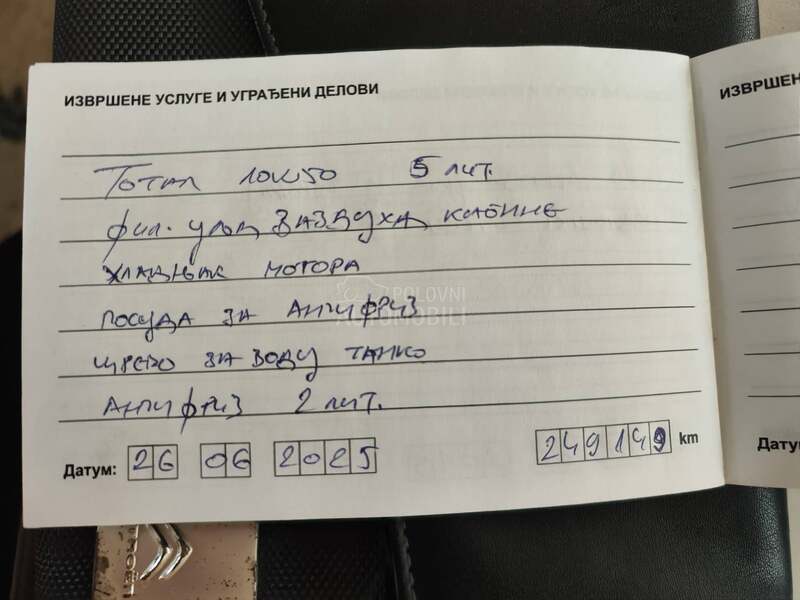 ИЗВРШЕНЕ УСЛУГЕ И УГРАЂЕНИ ДЕЛОВИ
ТОТАЛ 10W50 5 ЛИТ.
ФИЛ. УЉА ВАЗДУХА КАБИНЕ
ХЛАДЊАК МОТОРА
ПОСУДА ЗА АНТИФРИЗ
ЦРЕВО ЗА ВОДУ ТАНКО
АНТИФРИЗ 2 ЛИТ.
Датум: 26 06 2025 249149 km
POLOVNI
AUTOMOBILI
ИЗВРШЕН
Датум